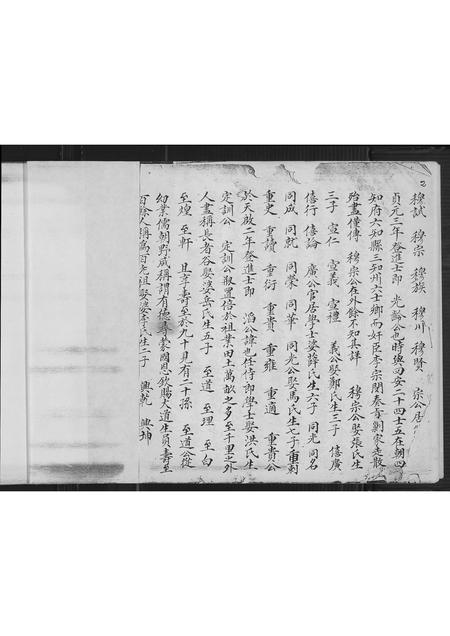 穆試 穆宗 穆族 穆川 穆賢 宗公居
貞元三年登進士即 光齡公也時與四安二十四士五在朝四
知府六知縣三知州六士鄉而奸臣李宗閔奏旨剿家走散
殆盡僅傳 穆宗公在外餘不知其詳 穆宗公娶張氏生
三子 宣仁 宣義 宣禮 義公娶鄭氏生三子 僖廣
僖行 僖論 廣公官居學士娑薛氏生六子 同光 同名
同成 同就 同榮 同華 同光公娶馬氏生七子重到
重史 重讀 重衍 重貴 重雍 重適 重貴公
於天啟二年登進士即 滔公諱也任侍郎學士娶洪氏生
定訓公 定訓公服置啓於祖業田土萬畝之多至千里之外
人盡稱長者谷娶婆岳氏生五子 至道 至埋 至白
至煌 至軒 且享壽至於九十見有二十孫 至道公從
幼業儒朝野咸稱謂有德尋蒙國恩欽賜大道生員壽至
百餘人稱為百老祖娶婆李氏生二子 興乾 興坤